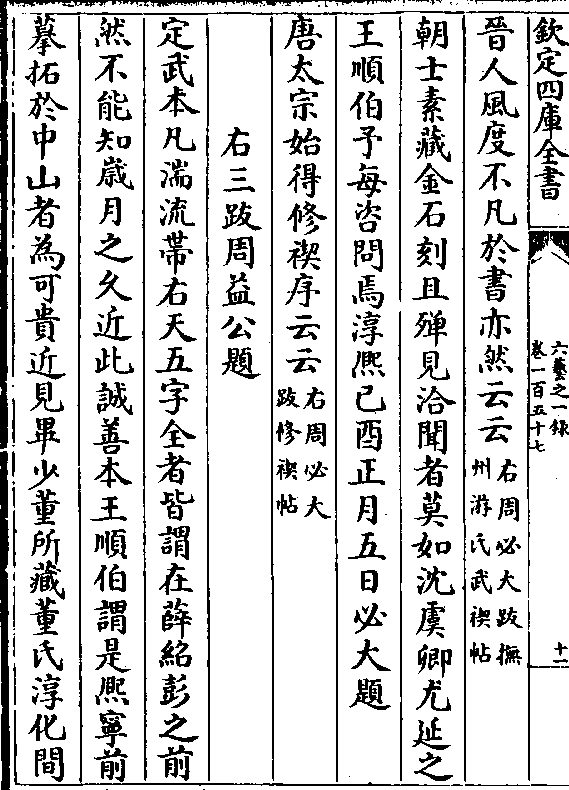 欽定四庫全書
六藝之一錄
卷一百五十七
十一
晉人風度不凡於書亦然云云
右周必大跋撫
州游氏武禊帖
朝士素藏金石刻且殫見洽聞者莫如沈虞卿尤延之
王順伯予每咨問焉淳熙己酉正月五日必大題
唐太宗始得修禊序云云
右周必大
跋修禊帖
右三跋周益公題
定武本凡湍流帶右天五字全者皆謂在薛紹彭之前
然不能知嵗月之久近此誠善本王順伯謂是熙寧前
摹拓於中山者為可貴近見畢少董所藏董氏淳化間